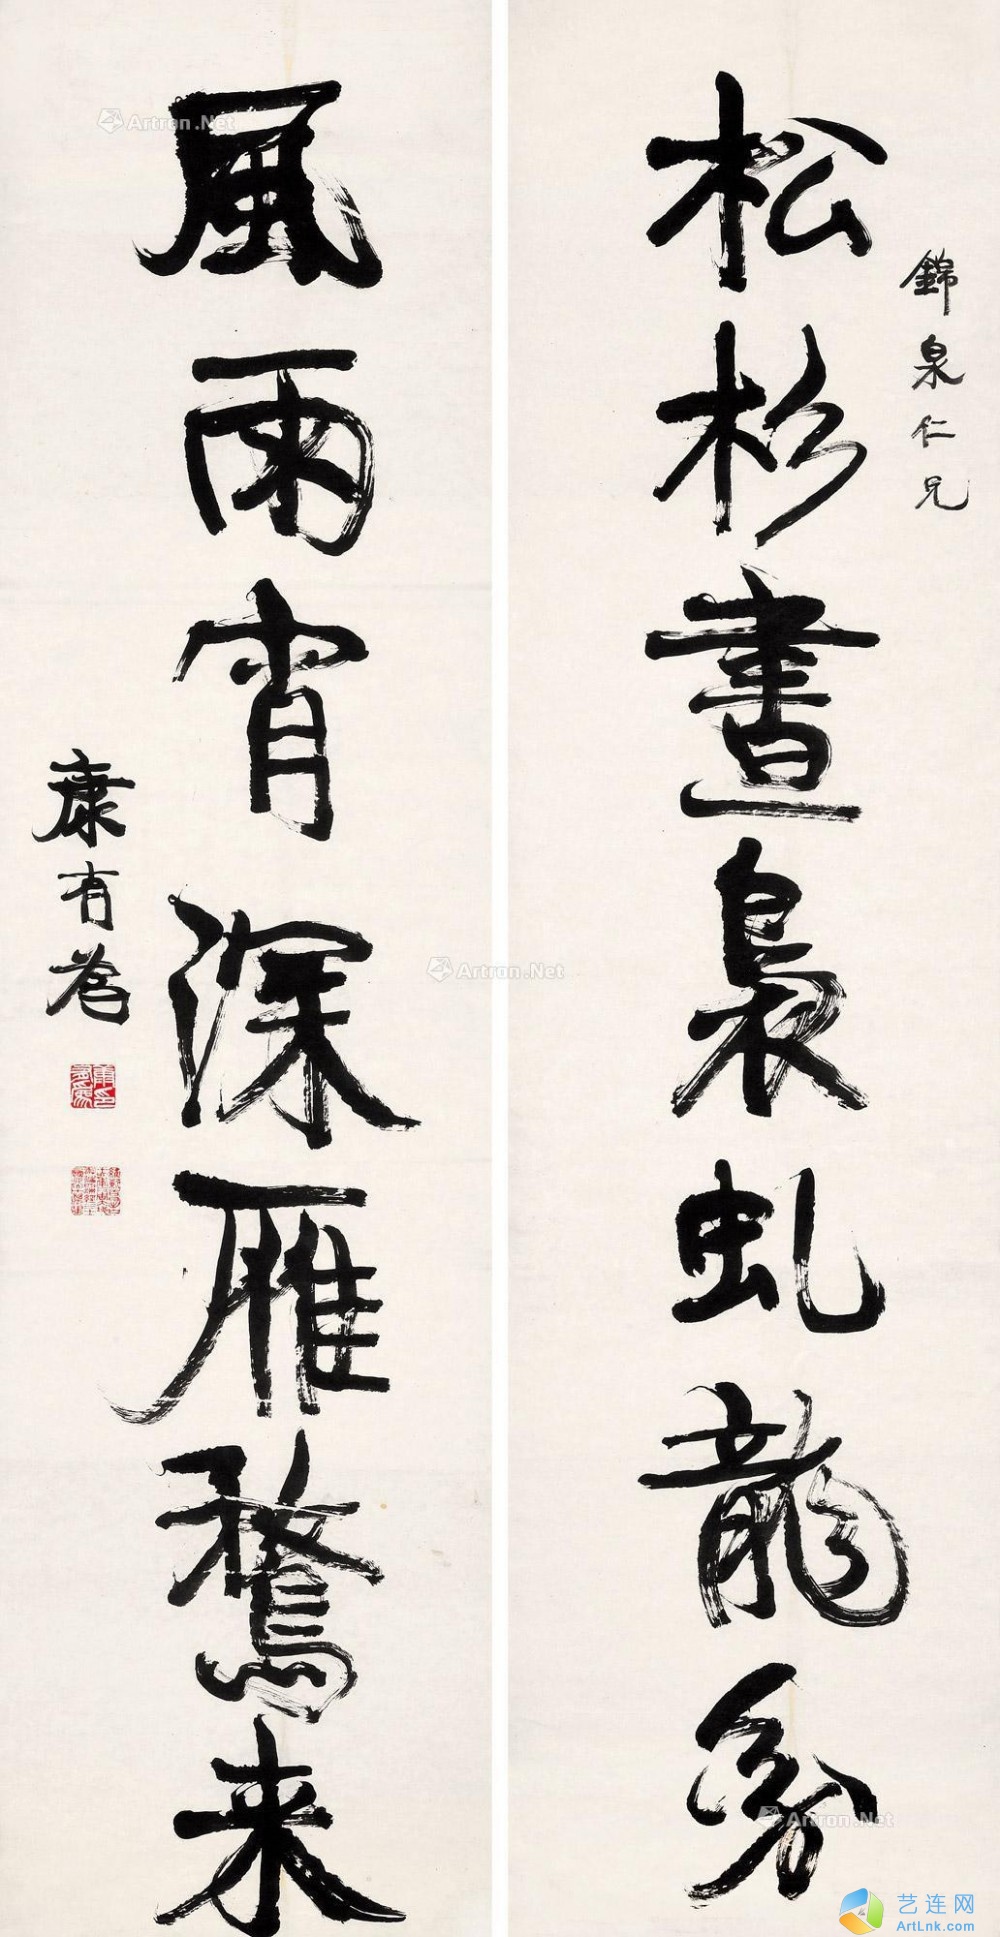 錦泉仁兄
松杉晝裊虬龍
風雨宵深雁鶩来
康有為
康有爲印
Artron.Net
Artron.Net
Artron.Net
艺连网
ArtLnk.com